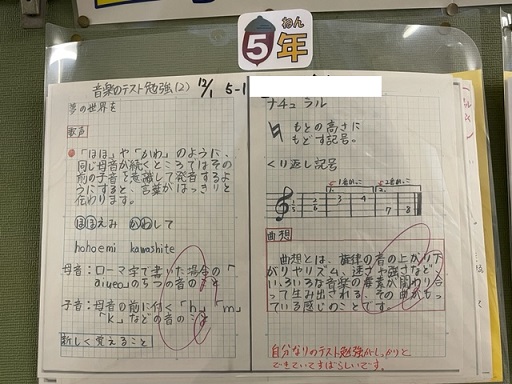 5年
ねん
音楽のテスト勉強(2) 12/1 5-1
夢の世界を
歌声
「ほほ」や「かわ」のように、
同じ母音が続くところではその
前の子音を意識して発音するよ
うにすると、言葉がはっきりと
伝わります。
ほほえみ かわして
hohoemi kawashite
母音:ローマ字で書いた場合の「
aiueo」の5つの音のこと
子音:母音の前に付く「h」「m」
「k」などの音のこと
新しく覚えること
ナチュラル
もとの高さに
もどす記号。
くり返し記号
1 2 3 4 5 6 7 8
曲想
曲想とは、旋律の音の上がり下
がりやリズム、速さや強さなど
いろいろな音楽の要素が関わり合
って生み出される、その曲がもっ
ている感じのことです。
自分なりのテスト勉強がしっかりと
できていてすばらしいです。